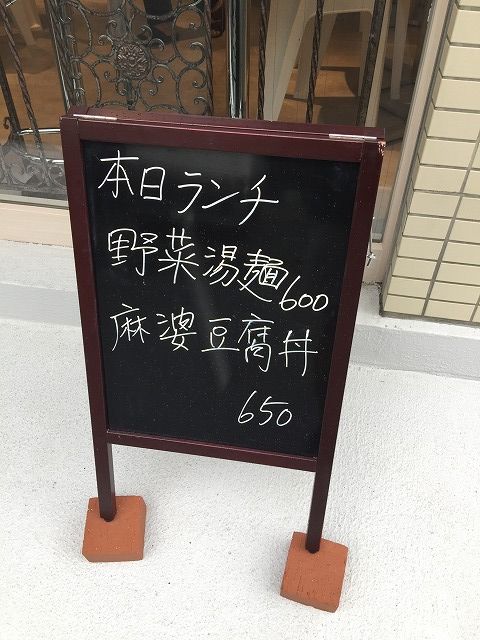 本日ランチ
野菜湯麺600
麻婆豆腐丼
650